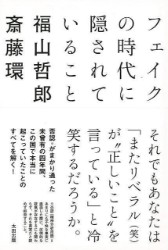 フェイク
の時代に
隠されて
いること
福山哲郎
斎藤環
それでもあなたは
「またリベラル(笑)
が“正しいこと”を
言っている」と冷
笑するだろうか。
否認でがまかり通った
未曽有の四年間、
この国で本当に
起こっていたことの
すべてを解く!
太田出版